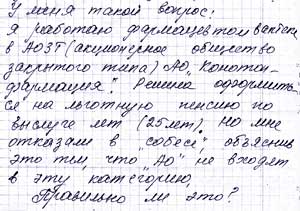 У меня такой вопрос:
я работаю фармацевтом в аптеке
в АОЗТ (акционерное общество
закрытого типа) АО „Конотоп-
фармация". Решила оформить-
ся на льготную пенсию по
выслуге лет (25 лет). Но мне
отказали в „собесе", объяснив
это тем, что „АО" не входят
в эту категорию.
Правильно ли это?